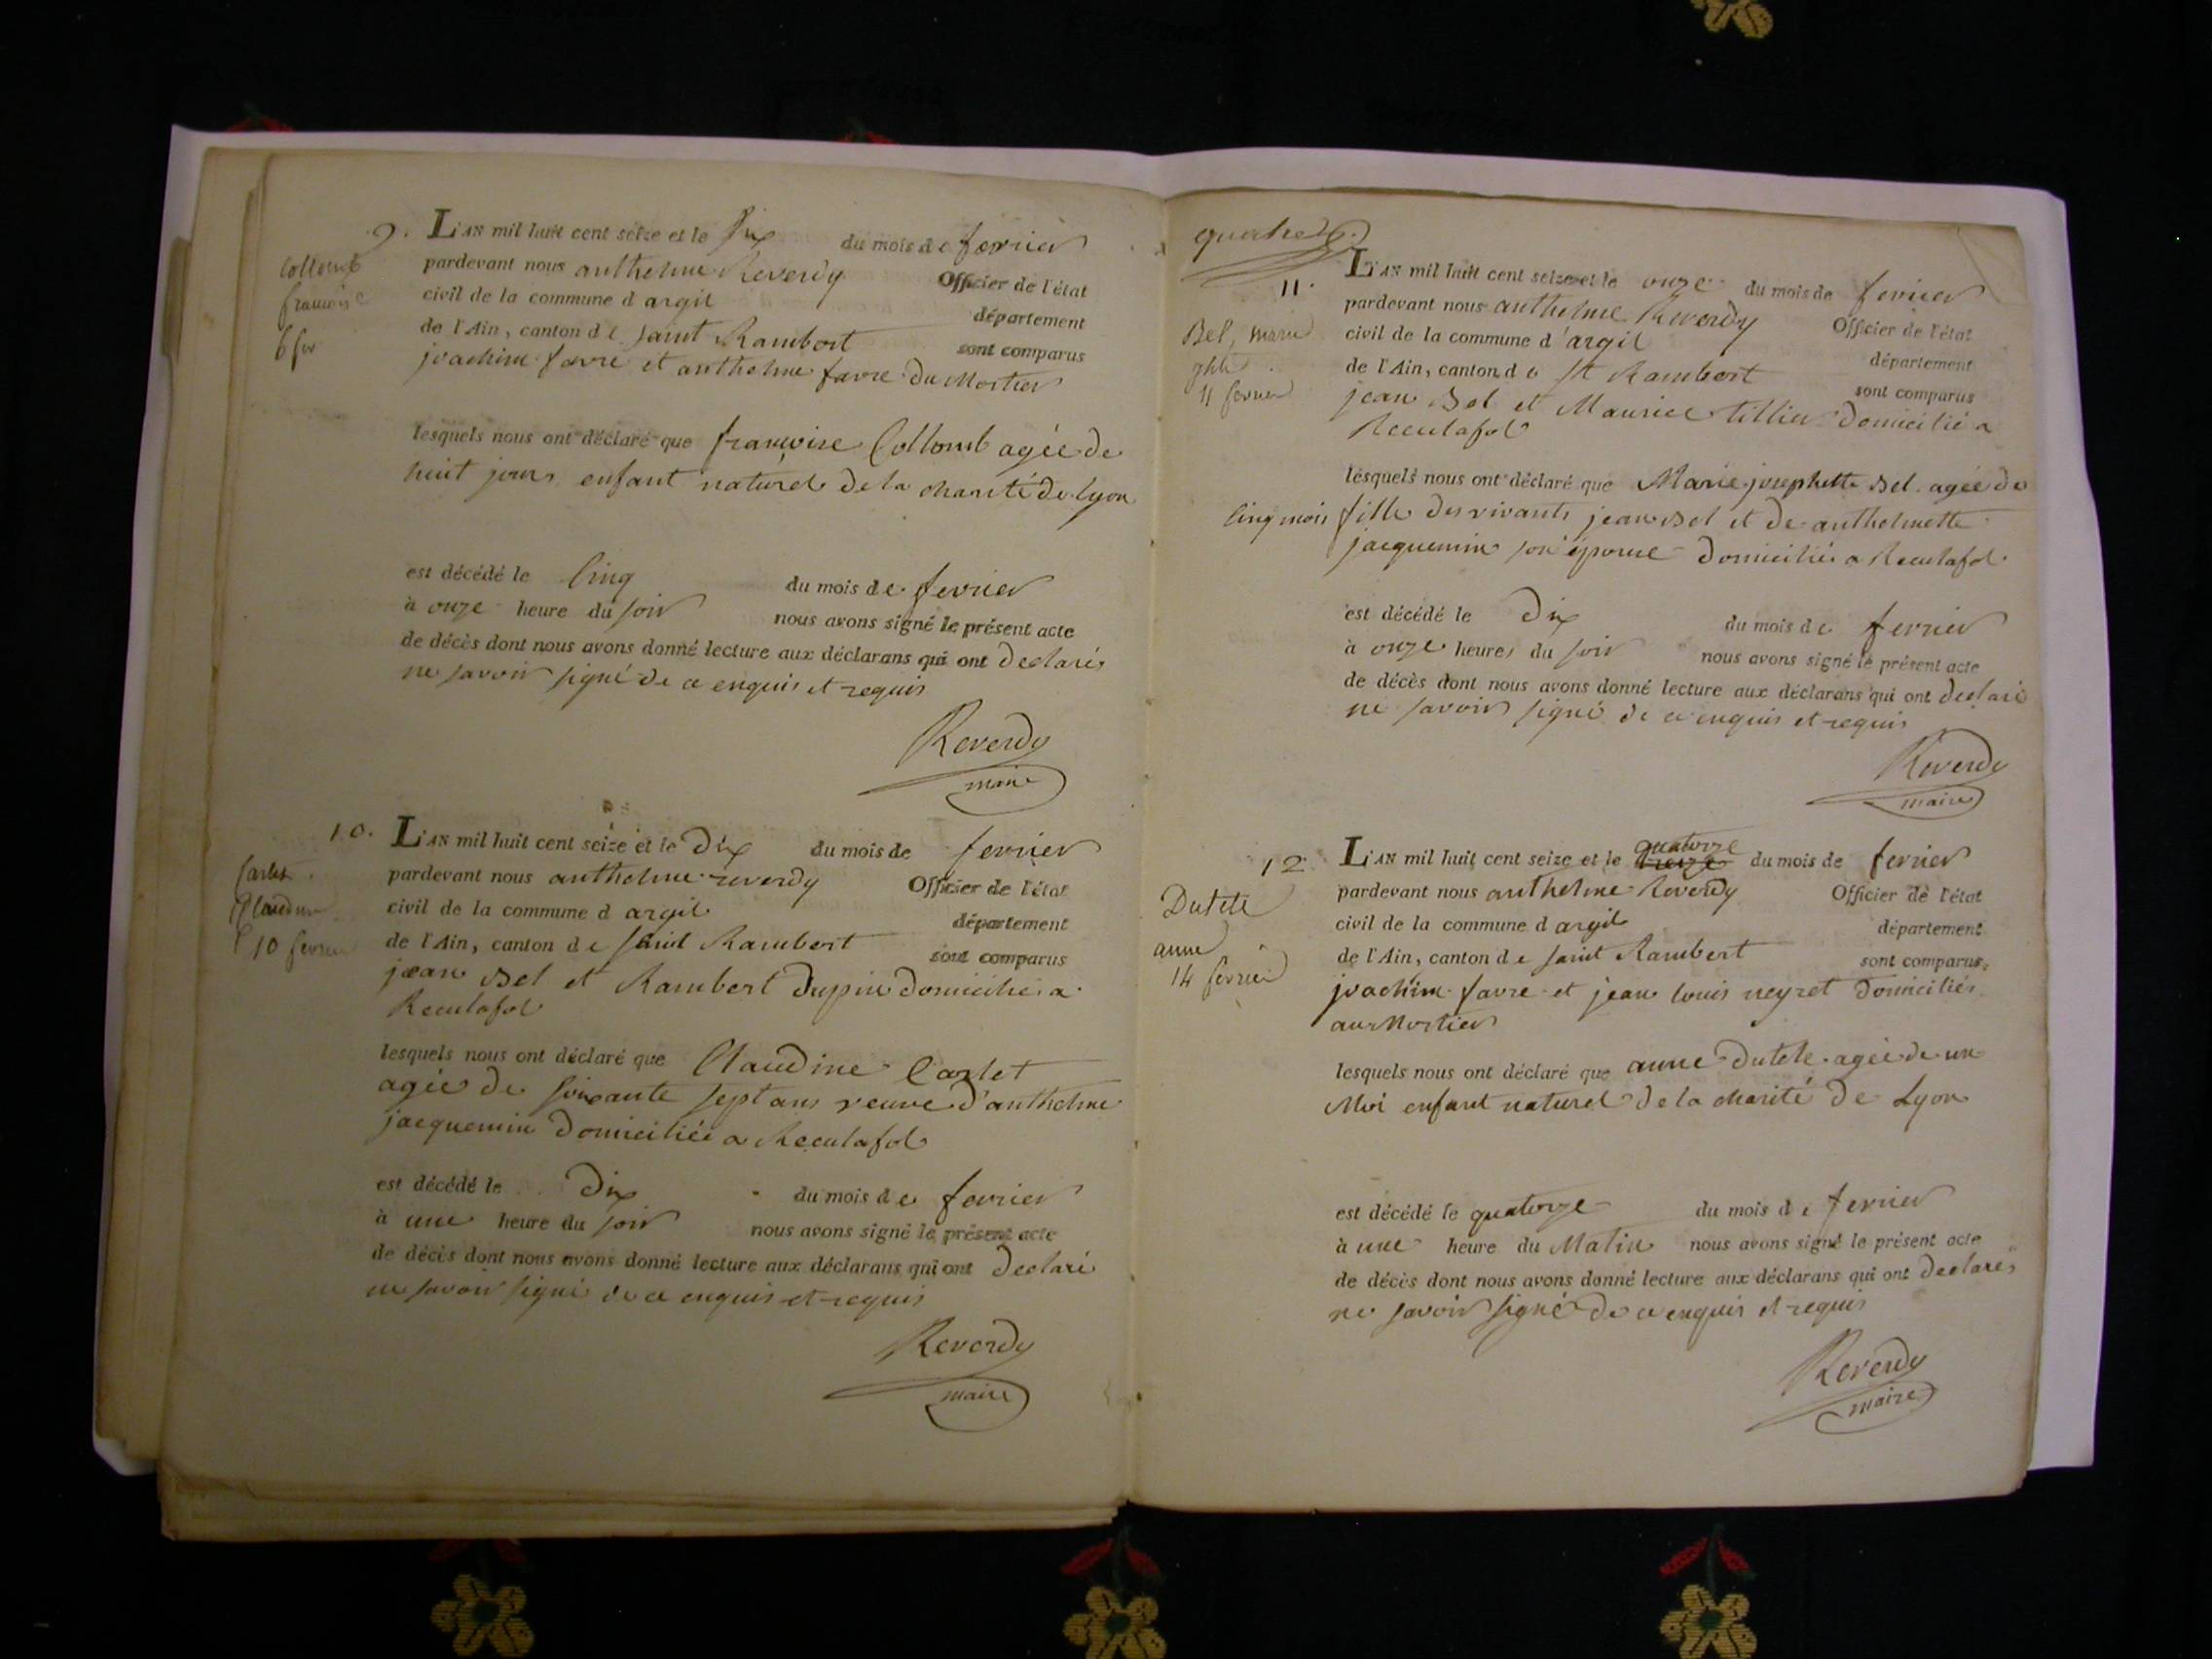 9.
Collomb
françoise
6 fer
L'AN mil huit cent seize et le Six du mois de ferrier
pardevant nous anthelme Reverdy Officier de l'état
civil de la commune d argil département
de l'Ain, canton de Saint Rambert sont comparus
joachim favre et anthelme favre du Mortier
lesquels nous ont déclaré que françoise Collomb agée de
huit jours enfant naturel de la charité de lyon
est décédé le Cinq du mois de fevrier
à onze heure du soir nous avons signé le présent acte
de décès dont nous avons donné lecture aux déclarans qui ont declarés
ne savoir signé de ce enquis et requis
Reverdy
maire
10.
Carlet
Claudine
10 fevrier
L'AN mil huit cent seize et le Dix du mois de ferrier
pardevant nous anthelme reverdy Officier de l'état
civil de la commune d argil département
de l'Ain, canton de saint Rambert sont comparus
jean Bel et Rambert Dupin domiciliés a
Reculafol
lesquels nous ont déclaré que Claudine Carlet
agée de soixante sept ans veuve d'anthelme
jacquemin Domiciliée a Reculafol
est décédé le Dix du mois de fevrier
à une heure du soir nous avons signé le présent acte
de décès dont nous avons donné lecture aux déclarans qui ont Declaré
ne savoir signé de ce enquis et requis
Reverdy
maire
11.
Bel, marie
jphte
11 ferrier
L'AN mil huit cent seize et le onze du mois de ferrier
pardevant nous anthelme Reverdy Officier de l'état
civil de la commune d'argil département
de l'Ain, canton de St Rambert sont comparus
jean Bel et Maurice tillier domicilié a
Reculafol
lesquels nous ont déclaré que Marie josephette Bel agée de
Cinq mois fille des vivants jean Bel et de anthelmette
jacquemin son épouse domiciliés a Reculafol
est décédé le Dix du mois de ferrier
à onze heures du soir nous avons signé le présent acte
de décès dont nous avons donné lecture aux déclarans qui ont declaré
ne savoir signé de ce enquis et requis
Reverdy
maire
12
Dutele
anne
14 ferrier
quatorze
L'AN mil huit cent seize et le treize du mois de ferrier
pardevant nous anthelme Reverdy Officier de l'état
civil de la commune d argil département
de l'Ain, canton de saint Rambert sont comparus
joachim favre et jean louis neyret Domiciliés
au Mortier
lesquels nous ont déclaré que anne Dutele agée de un
Moi enfant naturel de la charité de Lyon
est décédé le quatorze du mois de ferrier
à une heure du Matin nous avons signé le présent acte
de décès dont nous avons donné lecture aux déclarans qui ont declarés
ne savoir signé de ce enquis et requis
Reverdy
maire